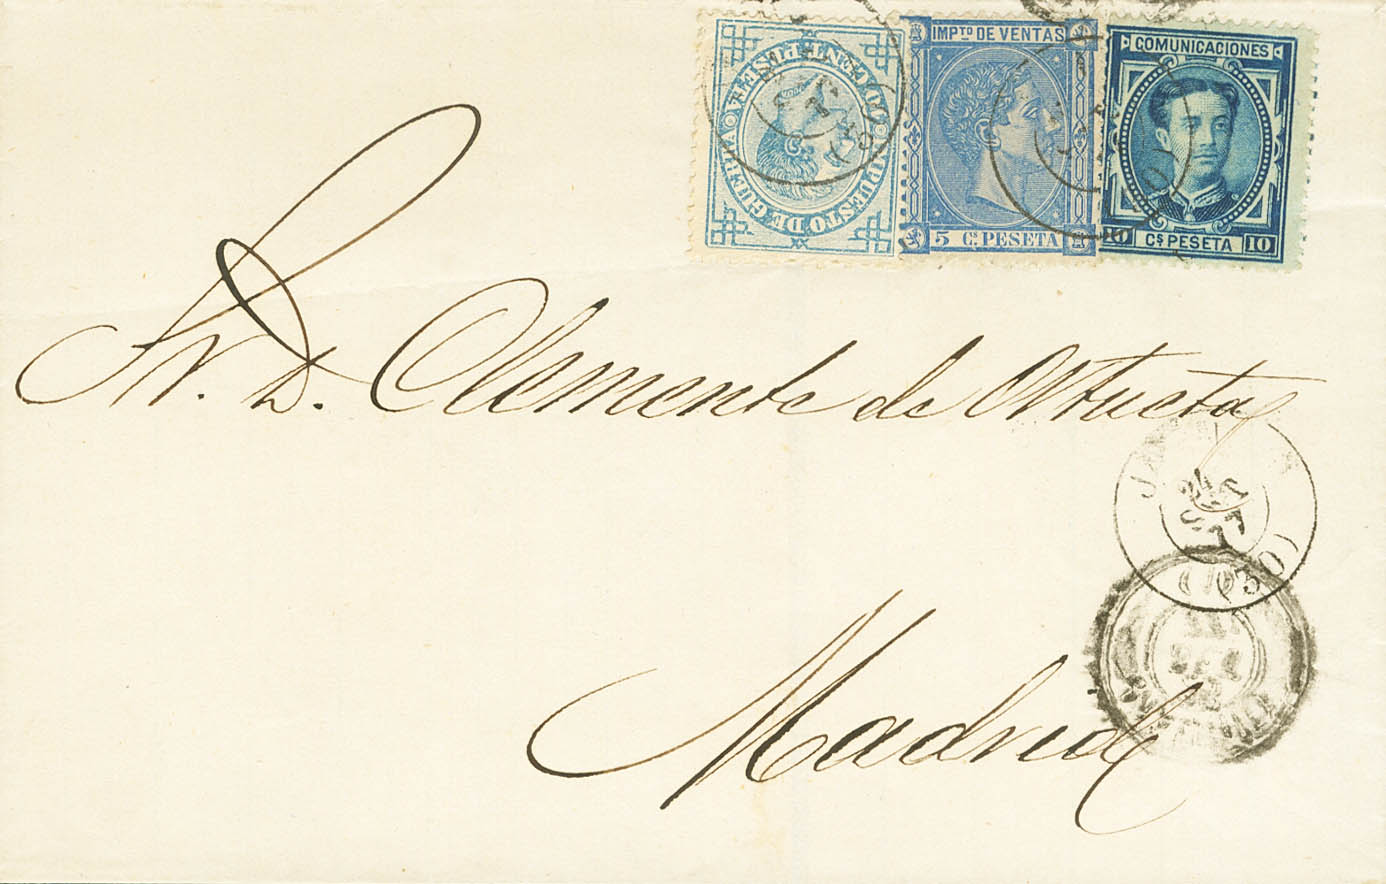 IMPUESTO DE GUERRA
5 CENT. PESETA
IMPTO DE VENTAS
5 Cs. PESETA
COMUNICACIONES
10 Cs PESETA 10
Sr. D. Clemente de Ortueta
(30)
Madrid